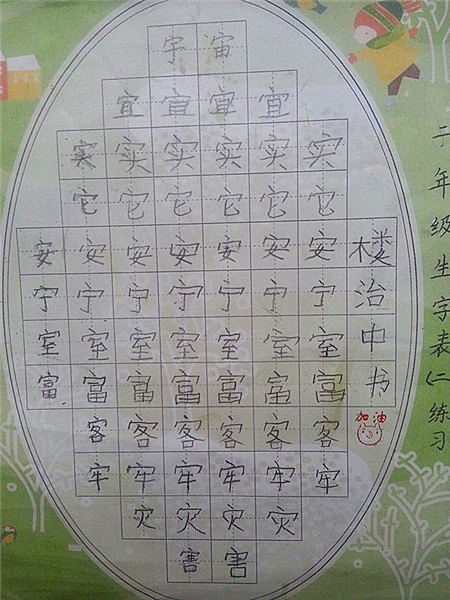 宇宙
宜宜宜宜
实实实实实实
它它它它它它
安安安安安安安楼
宁宁宁宁宁宁宁治
室室室室室室室中
富富富富富富富书
客客客客客客加油
牢牢牢牢牢牢
灾灾灾灾
害害
年级生字表(二练习